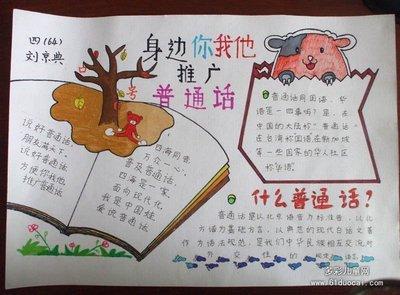 四(64)
刘京典
身边你我他
推广
普通话
说好普通话,
朋友满天下。
说好普通话
方便你我他
推广普通话
四海同音
万众一心,
普及普通话,
四海是一家。
面向现代化
我是中国娃,
爱说普通话
普通话同国语、华
语是一回事吗?是,在
中国的大陆称"普通话"
在台湾称国语在新加坡
等一些国家的华人社区
称华语。
什么普通话?
普通话是以北京语音为标准音,以北
方语为基础方言,以典范的现代白话文著
作为语法规范,是我们中华民族相互交流对
外交往的
多彩儿童网
www.61duocai.com